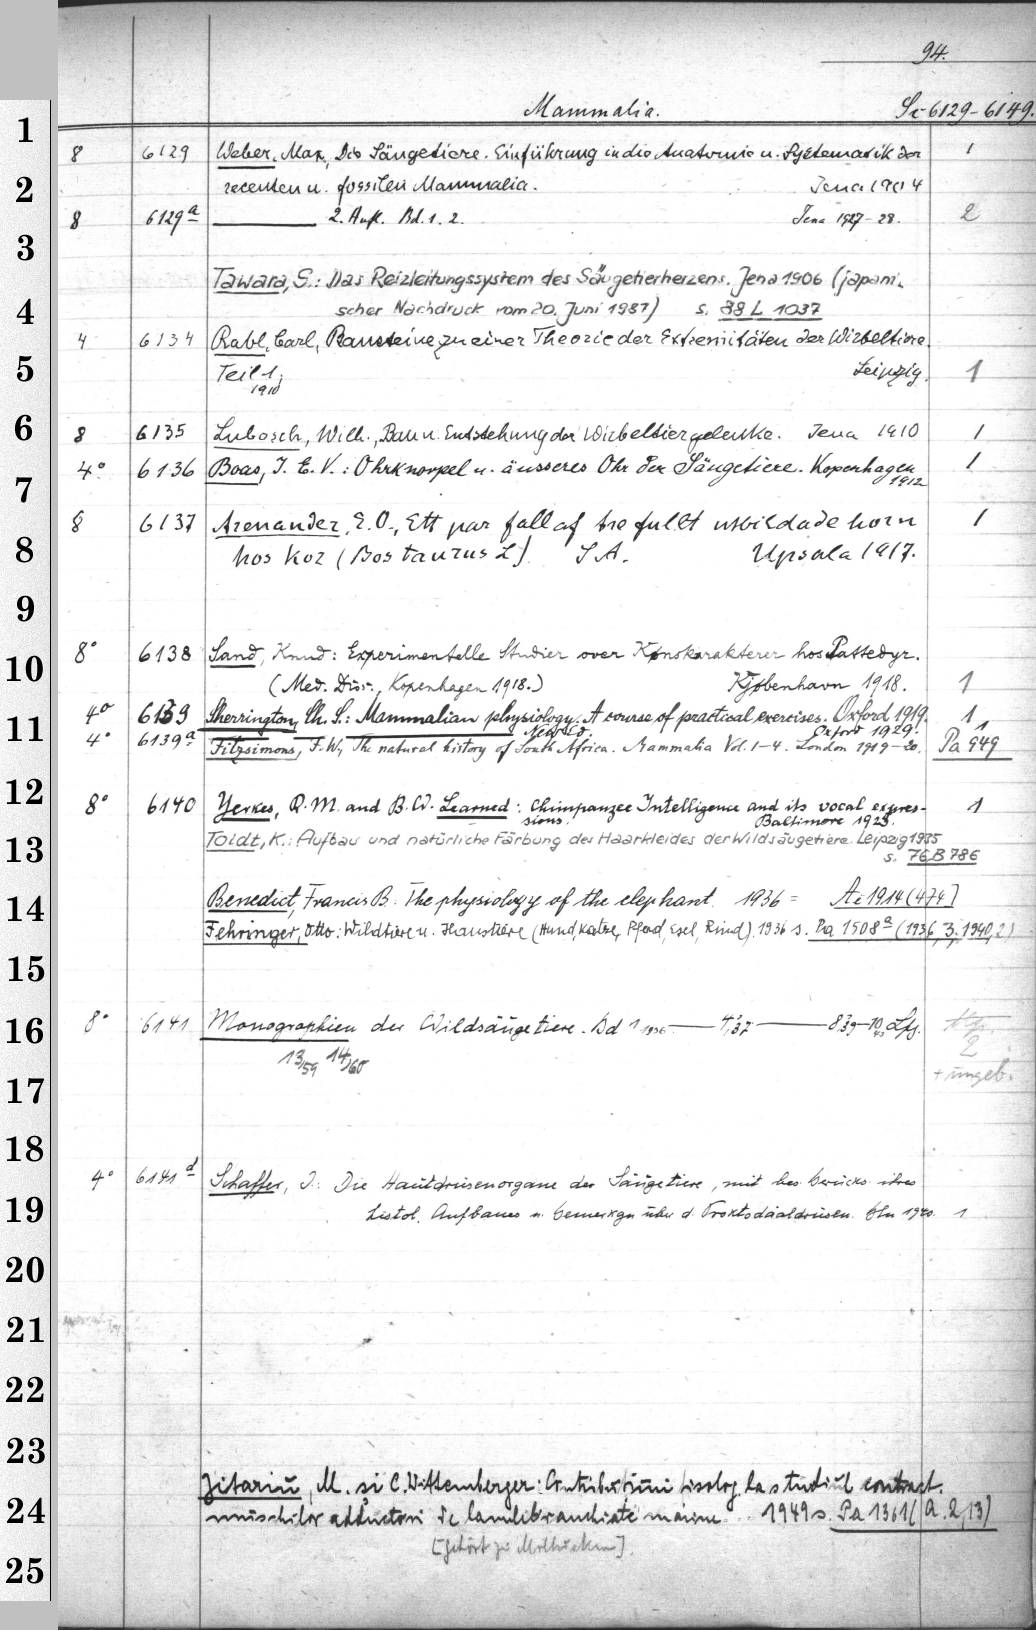 94.
Mammalia. Sc 6129-6149.
1
8 6129 Weber, Max, Die Säugetiere. Einführung in die Anatomie u. Systematik der 1
2
recenten u. fossilen Mammalia. Jena 1904
8 6129a 2. Aufl. Bd. 1. 2. Jena 1927-28. 2
3
Tawara, S.: Das Reizleitungssystem des Säugetierherzens. Jena 1906 (japani-
4
scher Nachdruck vom 20. Juni 1987) s. 88 L 1037
4 6134 Rabl, Carl, Bausteine zu einer Theorie der Extremitäten der Wirbeltiere.
5
Teil 1; Leipzig. 1
1910
6
8 6135 Lubosch, Wilh., Bau u. Entstehung der Wirbeltiergelenke. Jena 1910 1
4° 6136 Boas, J. E. V.: Ohrknorpel u. äusseres Ohr der Säugetiere. Kopenhagen 1
7
1912
8 6137 Arenander, E. O., Ett par fall af tre fullt utbildade horn 1
8
hos kor (Bos taurus L). S A. Upsala 1917.
9
8° 6138 Sand, Knud: Experimentelle Studier over Kønskarakterer hos Pattedyr.
10
(Med. Diss., Kopenhagen 1918.) Kjøbenhavn 1918. 1
4° 6139 Sherrington, Ch. S.: Mammalian physiology. A course of practical exercises. Oxford 1919. 1
11
New Ed. Oxford 1929. 1
4° 6139a Fitzsimons, F. W., The natural history of South Africa. Mammalia Vol. 1-4. London 1919-20. Pa 949
12
8° 6140 Yerkes, R. M. and B. W. Learned: Chimpanzee Intelligence and its vocal expres- 1
sions. Baltimore 1925.
13
Toldt, K.: Aufbau und natürliche Färbung des Haarkleides der Wildsäugetiere. Leipzig 1935
s. 76 B 786
14
Benedict, Francis B. The physiology of the elephant. 1936 = Ai 1914 (474)
Fehringer, Otto: Wildtiere u. Haustiere (Hund, Katze, Pferd, Esel, Rind). 1936 s. Pa 1508a (1936, 3. 1940, 2)
15
16
8° 6141 Monographien der Wildsäugetiere. Bd 1 1936 4,37 8,39-10,43 Lfg.
2
13/59 14/60 + ungeb.
17
18
4° 6141d Schaffer, J.: Die Hautdrüsenorgane der Säugetiere, mit bes. berücks. ihres
19
histol. Aufbaues u. bemerkgn über d. Proktodäaldrüsen. Bln 1940. 1
20
21
22
23
Jitariu, M. și C. Wittemberger: Contribuțiuni fisiolog. la studiul contract.
24
muschilor adductori de lamilibranchiate marine. 1949 s. Pa 1361 (A. 2, 13)
[gehört zu Mollusken].
25